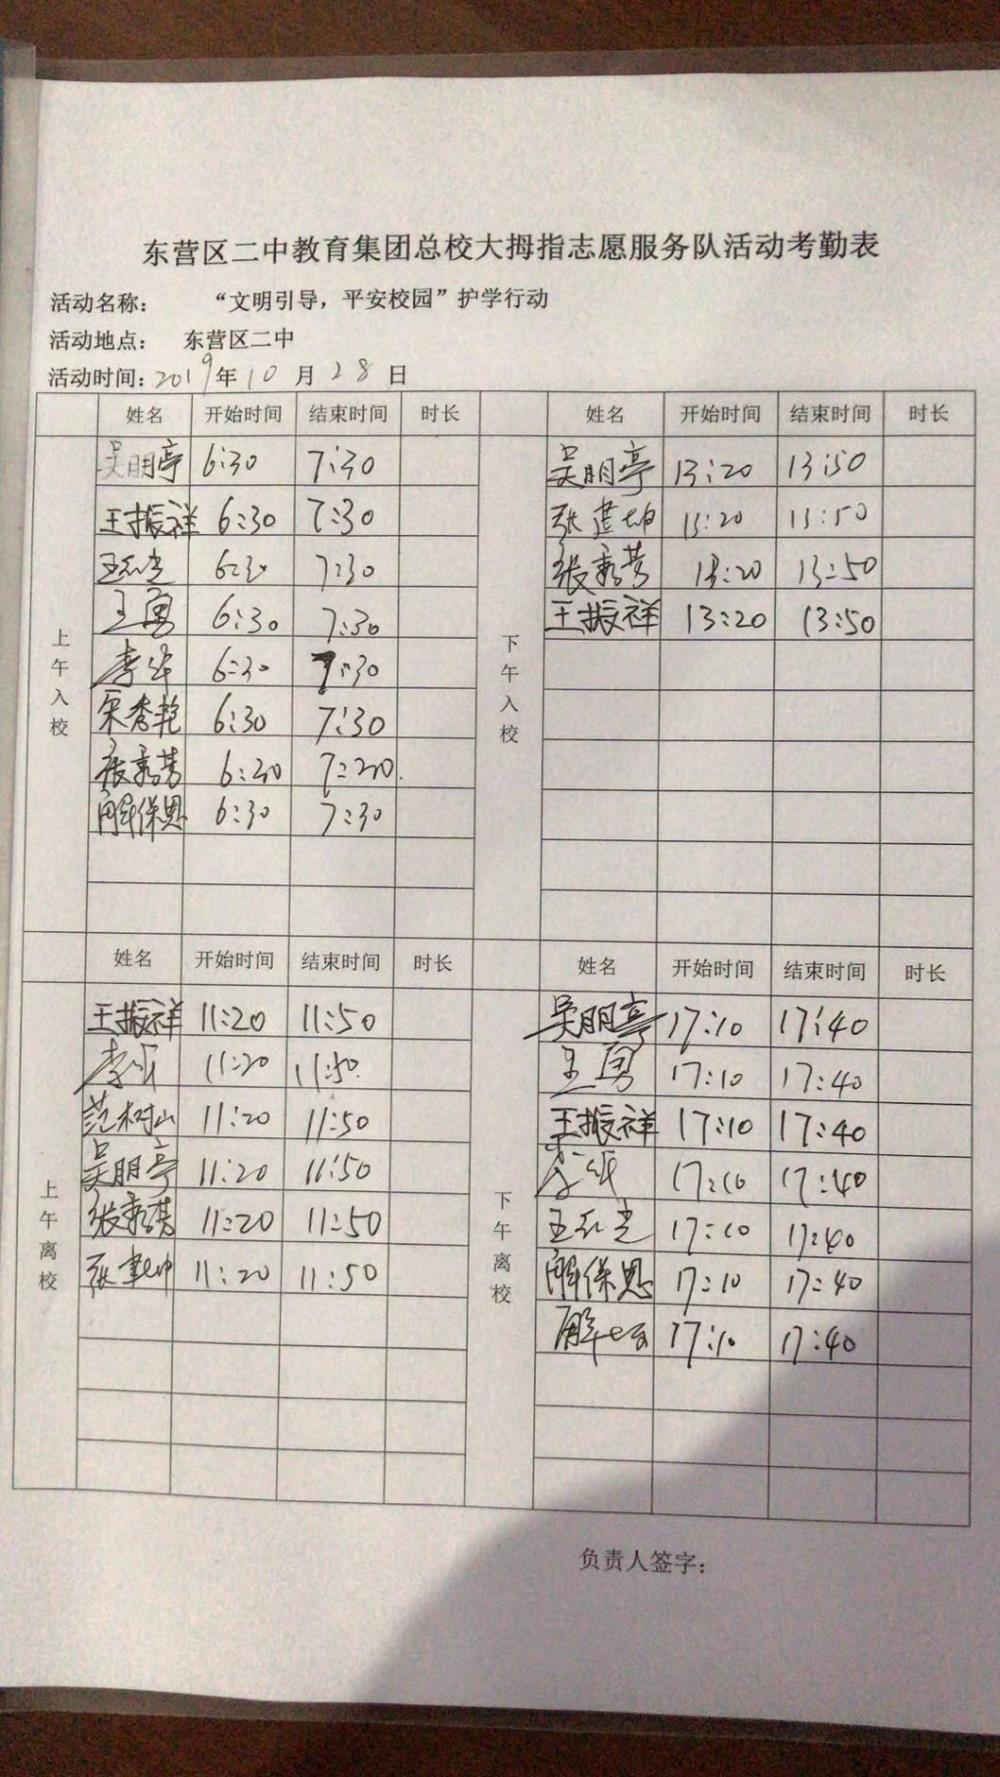 东营区二中教育集团总校大拇指志愿服务队活动考勤表
活动名称： “文明引导，平安校园”护学行动
活动地点： 东营区二中
活动时间：2019年10月28日
姓名 开始时间 结束时间 时长 姓名 开始时间 结束时间 时长
上午入校
吴明亭 6:30 7:30
王振祥 6:30 7:30
6:30 7:30
王勇 6:30 7:30
李华 6:30 7:30
宋秀艳 6:30 7:30
张秀芳 6:30 7:30
解保恩 6:30 7:30
下午入校
吴明亭 13:20 13:50
张建坤 13:20 13:50
张秀芳 13:20 13:50
王振祥 13:20 13:50
姓名 开始时间 结束时间 时长 姓名 开始时间 结束时间 时长
上午离校
王振祥 11:20 11:50
李华 11:20 11:50
范树山 11:20 11:50
吴明亭 11:20 11:50
张秀芳 11:20 11:50
张建坤 11:20 11:50
下午离校
吴明亭 17:10 17:40
王勇 17:10 17:40
王振祥 17:10 17:40
李华 17:10 17:40
17:10 17:40
解保恩 17:10 17:40
17:10 17:40
负责人签字：